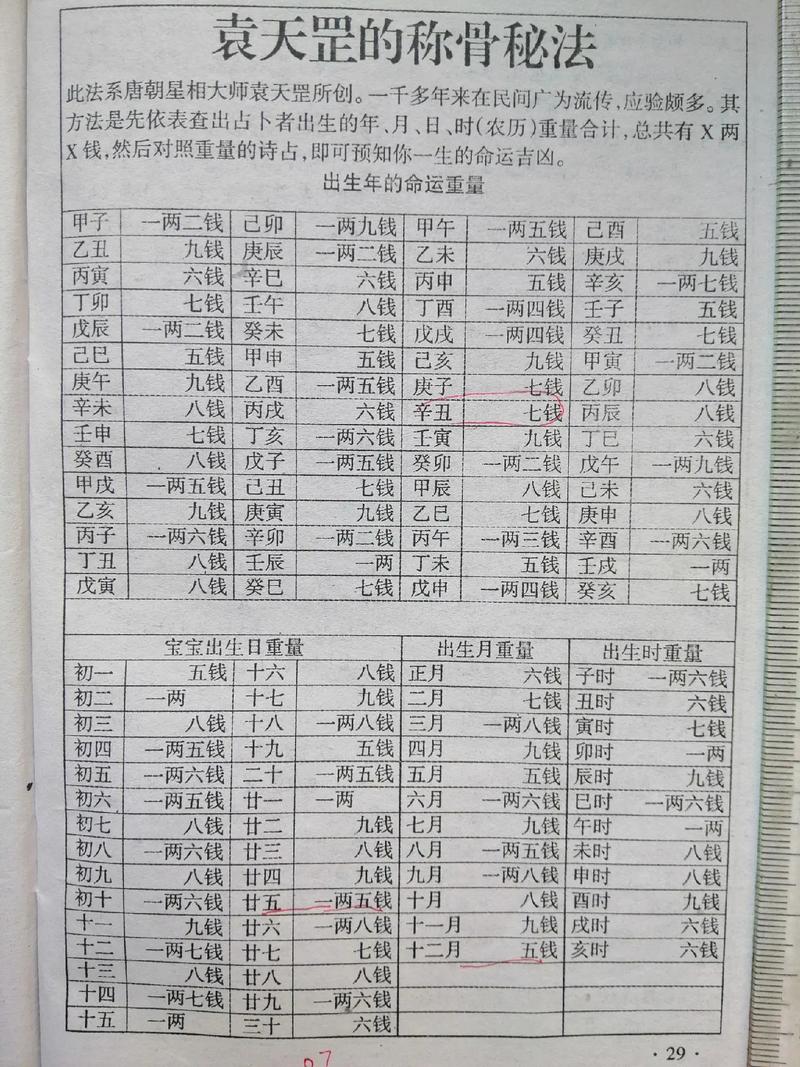 袁天罡的称骨秘法
此法系唐朝星相大师袁天罡所创。一千多年来在民间广为流传，应验颇多。其
方法是先依表查出占卜者出生的年、月、日、时(农历)重量合计，总共有 X 两
X 钱，然后对照重量的诗占，即可预知你一生的命运吉凶。
出生年的命运重量
甲子 一两二钱 己卯 一两九钱 甲午 一两五钱 己酉 五钱
乙丑 九钱 庚辰 一两二钱 乙未 六钱 庚戌 九钱
丙寅 六钱 辛巳 六钱 丙申 五钱 辛亥 一两七钱
丁卯 七钱 壬午 八钱 丁酉 一两四钱 壬子 五钱
戊辰 一两二钱 癸未 七钱 戊戌 一两四钱 癸丑 七钱
己巳 五钱 甲申 五钱 己亥 九钱 甲寅 一两二钱
庚午 九钱 乙酉 一两五钱 庚子 七钱 乙卯 八钱
辛未 八钱 丙戌 六钱 辛丑 七钱 丙辰 八钱
壬申 七钱 丁亥 一两六钱 壬寅 九钱 丁巳 六钱
癸酉 八钱 戊子 一两五钱 癸卯 一两二钱 戊午 一两九钱
甲戌 一两五钱 己丑 七钱 甲辰 八钱 己未 六钱
乙亥 九钱 庚寅 九钱 乙巳 七钱 庚申 八钱
丙子 一两六钱 辛卯 一两二钱 丙午 一两三钱 辛酉 一两六钱
丁丑 八钱 壬辰 一两 丁未 五钱 壬戌 一两
戊寅 八钱 癸巳 七钱 戊申 一两四钱 癸亥 七钱
宝宝出生日重量 出生月重量 出生时重量
初一 五钱 十六 八钱 正月 六钱 子时 一两六钱
初二 一两 十七 九钱 二月 七钱 丑时 六钱
初三 八钱 十八 一两八钱 三月 一两八钱 寅时 七钱
初四 一两五钱 十九 五钱 四月 九钱 卯时 一两
初五 一两六钱 二十 一两五钱 五月 五钱 辰时 九钱
初六 一两五钱 廿一 一两 六月 一两六钱 巳时 一两六钱
初七 八钱 廿二 九钱 七月 九钱 午时 一两
初八 一两六钱 廿三 八钱 八月 一两五钱 未时 八钱
初九 八钱 廿四 九钱 九月 一两八钱 申时 八钱
初十 一两六钱 廿五 一两五钱 十月 八钱 酉时 九钱
十一 九钱 廿六 一两八钱 十一月 九钱 戌时 六钱
十二 一两七钱 廿七 七钱 十二月 五钱 亥时 六钱
十三 八钱 廿八 八钱
十四 一两七钱 廿九 一两六钱
十五 一两 三十 六钱
·29·